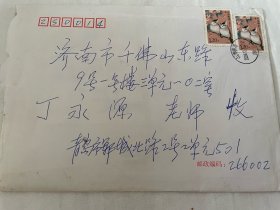 济南市千佛山东路
9号一号楼3单元一〇二室
丁永源 老师 收
城北路2号2单元501
邮政编码:266002